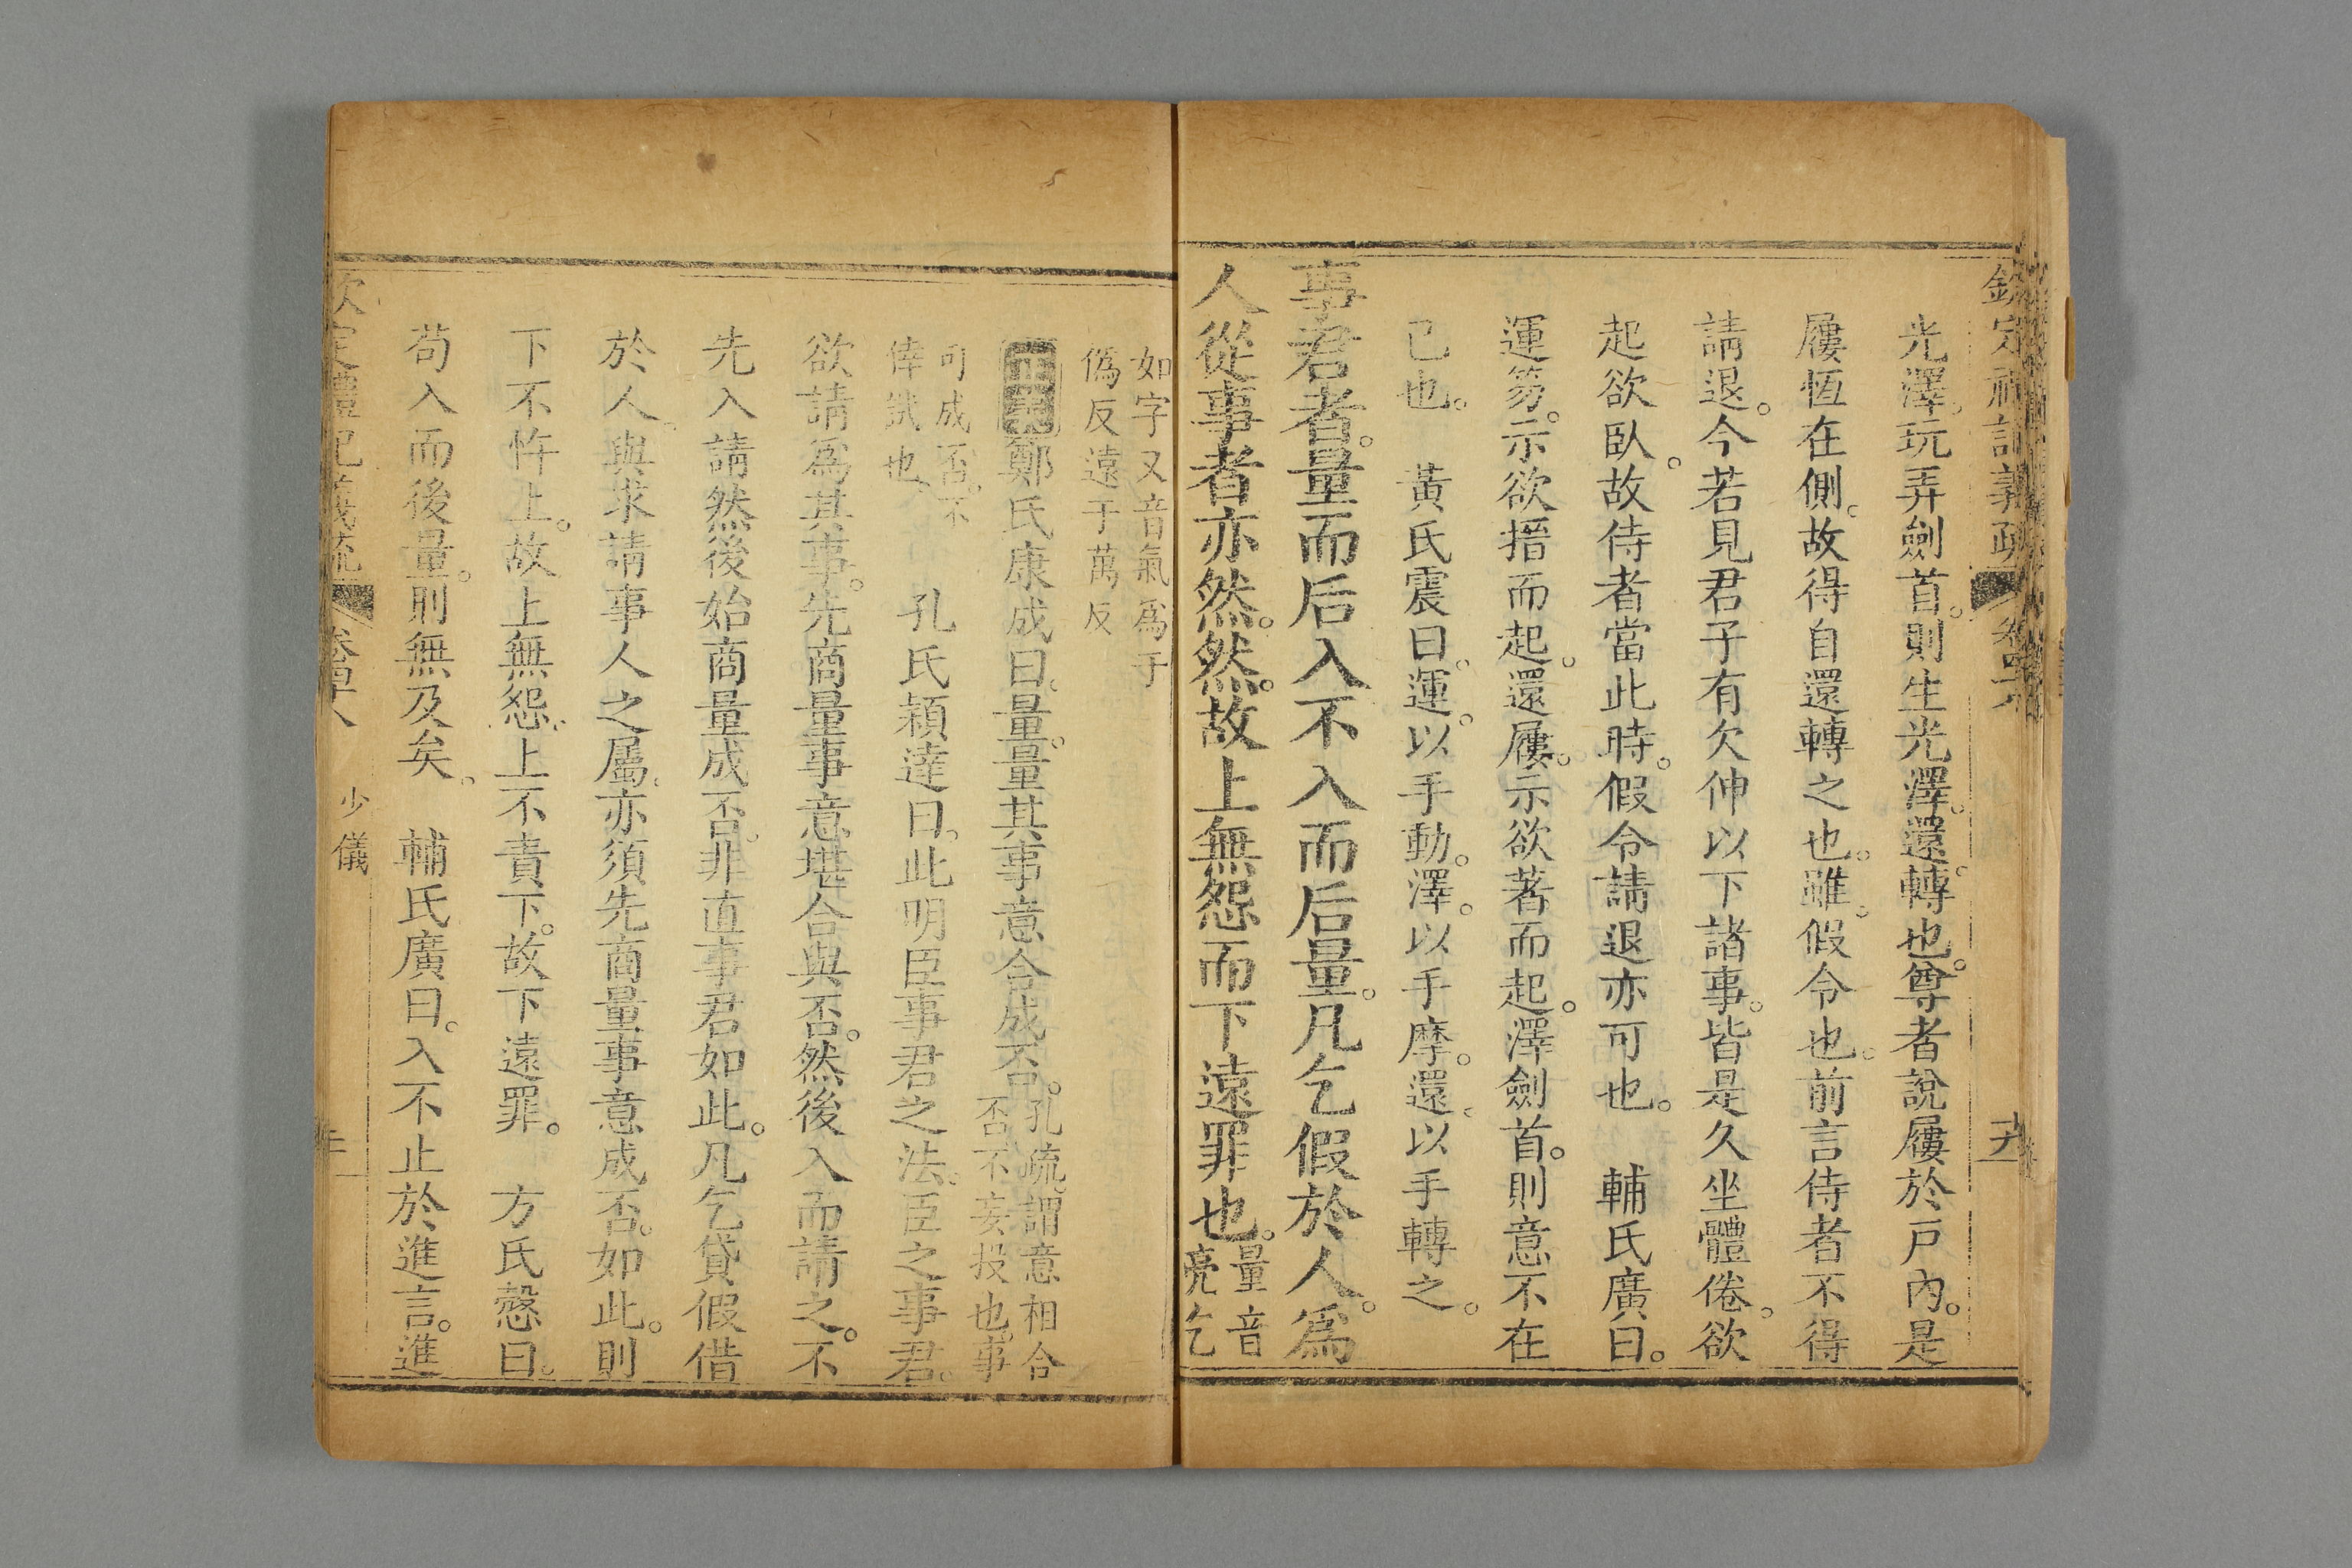 光澤玩弄劍首則生光澤還轉也尊者說屨於戸內是
屨恆在側故得自還轉之也雖假令也前言侍者不得
請退今若見君子有欠伸以下諸事皆是久坐體倦欲
起欲臥故侍者當此時假令請退亦可也　輔氏廣曰
運笏示欲搢而起還屨示欲著而起澤劍首則意不在
已也　黃氏震曰運以手動澤以手摩還以手轉之
事君者量而后入不入而后量凡乞假於人爲
人從事者亦然然故上無怨而下遠罪也量音
亮乞
如字又音氣爲于
僞反遠于萬反
正義鄭氏康成曰量量其事意合成否孔疏謂意相合
否不妄投也事
可成否不
倖試也　孔氏穎達曰此明臣事君之法臣之事君
欲請爲其事先商量事意堪合與否然後入而請之不
先入請然後始商量成否非直事君如此凡乞貸假借
於人與求請事人之屬亦須先商量事意成否如此則
下不忤上故上無怨上不責下故下遠罪　方氏慤曰
苟入而後量則無及矣　輔氏廣曰入不止於進言進
欽定禮記義疏　卷四十八　少儀